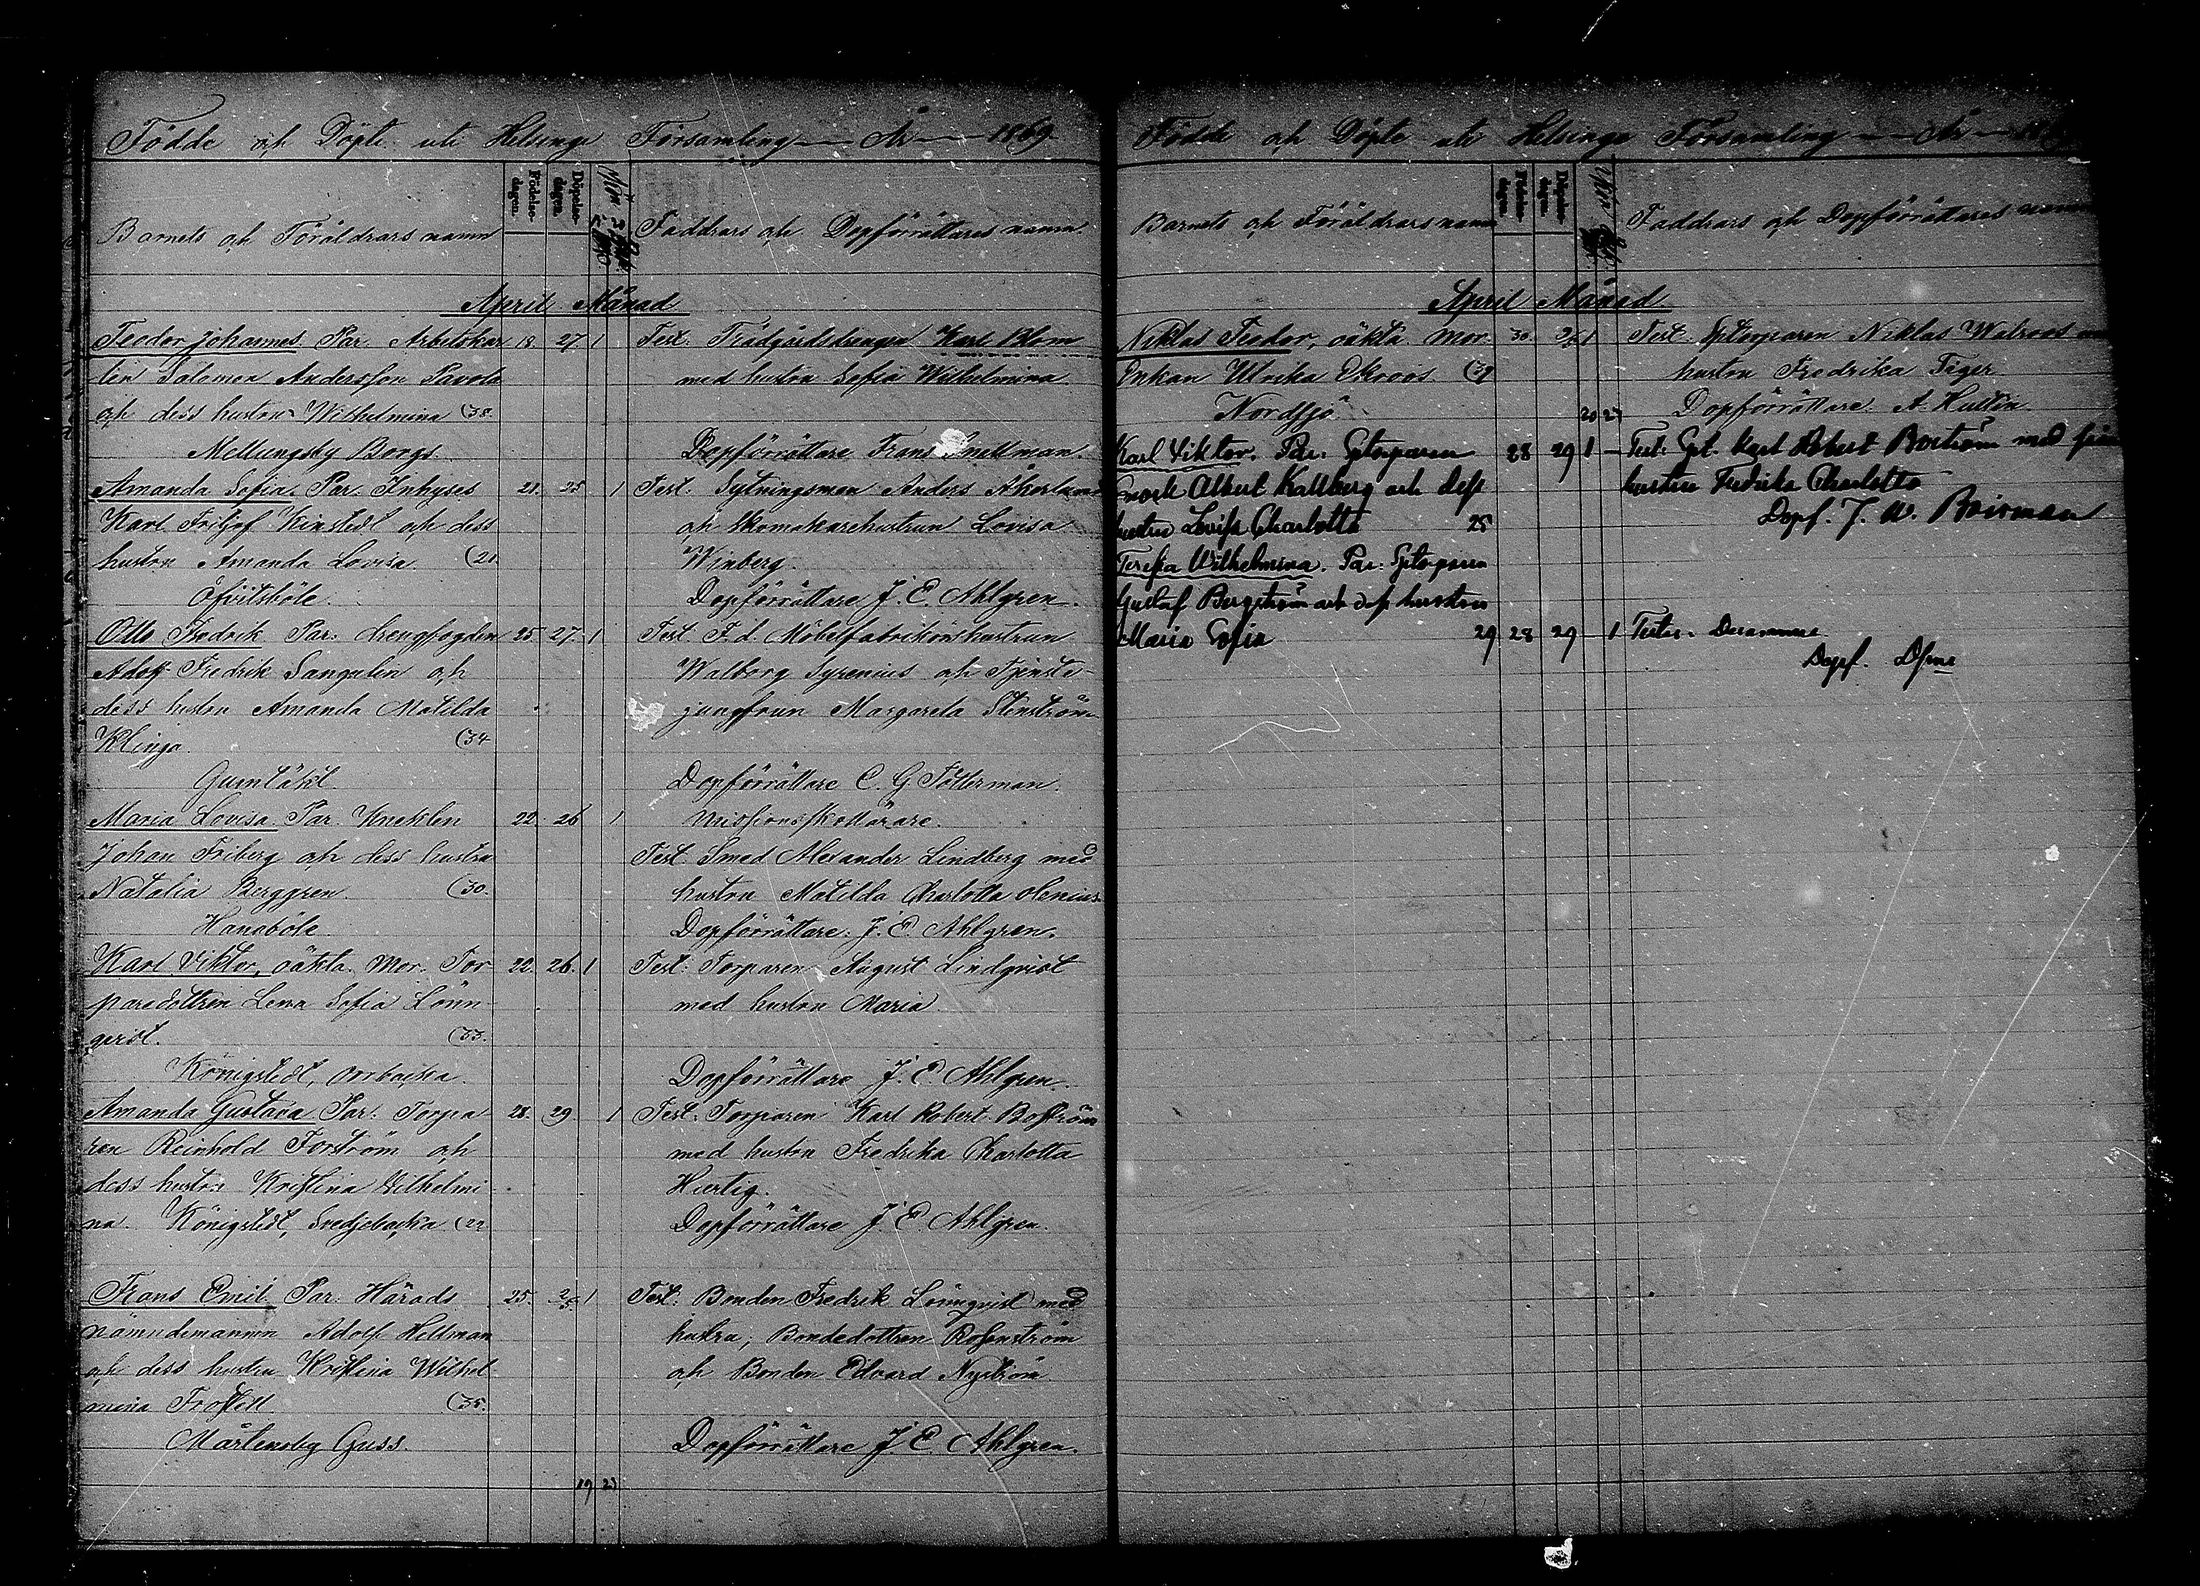 Födde och Döpte uti Helsinge Församling — År — 1869
Barnets och Föräldrars namn
Födelse-dagen.
Döpelse-dagen.
Faddrars och Dopförrättares namn
April Månad
Teodor Johannes. Par. Arbetskar 18. 27. 1
len Salomon Andersson Pavola
och dess hustru Wilhelmina (38.
Mellungsby Borgs.
Test. Trädgårdsdrengen Karl Blom
med hustru Sofia Wilhelmina.
Dopförrättare Frans Snellman.
Amanda Sofia. Par. Inhyses 21. 25. 1
Karl Frigof Krinstedt och dess
hustru Amanda Lovisa. (21
Öfvitsböle.
Test: Sytningsman Anders Åkerlund
och skomakarehustrun Lovisa
Winberg.
Dopförrättare J. E. Ahlgren.
Otto Fredrik Par. drengfogden 25. 27. 1
Adolf Fredrik Sangelin och
dess hustru Amanda Matilda
Klinga. (34
Gumtäkt.
Test. F. d. Möbelfabrikörshustrun
Walborg Syrenius och Tjenste-
jungfrun Margareta Stenström
Dopförrättare C. G. Tötterman.
Missions
Maria Lovisa. Par. Knekten 22. 26 1
Johan Friberg och dess hustru
Natalia Berggren. (30.
Hanaböle
Test Smed Alexander Lindberg med
hustru Matilda Charlotta Olenius
Dopförrättare. J. E. Ahlgren.
Karl Viktor, oäkta. Mor. Tor 22. 26. 1
paredottren Lena Sofia Lönn-
qvist. (33.
Königstedt,
Test: Torparen August Lindqvist
med hustru Maria.
Dopförrättare J. E. Ahlgren.
Amanda Gustava Par. Torpa 28. 29. 1
ren Reinhold Forström och
dess hustru Kristina Wilhelmi
na. Königstedt, Svedjebacka (22
Test: Torparen Karl Robert Boström
med hustru Fredrika Charlotta
Hiertig.
Dopförrättare J E Ahlgren.
Frans Emil Par. Härads 25. 2/5 1
nämndemannen Adolf Hellman
och dess hustru Kristina Wilhel
mina Frostell (35.
Mårtensby Guss.
Test: Bonden Fredrik Lönnqvist med
hustru; Bondedottren Rosenström
och Bonden Edvard Nyström
Dopförrättare J E Ahlgren.
19 23
Födde och Döpte uti Helsinge Församling — År —
Barnets och Föräldrars namn
Födelse-dagen.
Döpelse-dagen.
Faddrars och Dopförrättares namn
April Månad
Niklas Teodor, oäkta. Mor. 30. 2/5 1
Enkan Ulrika Ekroos. (39
Nordsjö 20 23
Test. Sptorparen Niklas Walroos
hustru Fredrika Tiger
Dopförrättare. A. Hultin
Karl Viktor. Par: Sptorparen 28 29 1 —
Enock Albert Kallberg och dess
hustru Lovisa Charlotta 25
Test: Spt. Karl Robert Boström med
hustru Fredrika Charlotta
Dopf. J. W. Boisman
Teresia Wilhelmina. Par: Sptorparen
Gustaf Bergström och dess hustru
Maria Sofia 29. 28 29 1
Testes. Desamme.
Dopf. Dsme